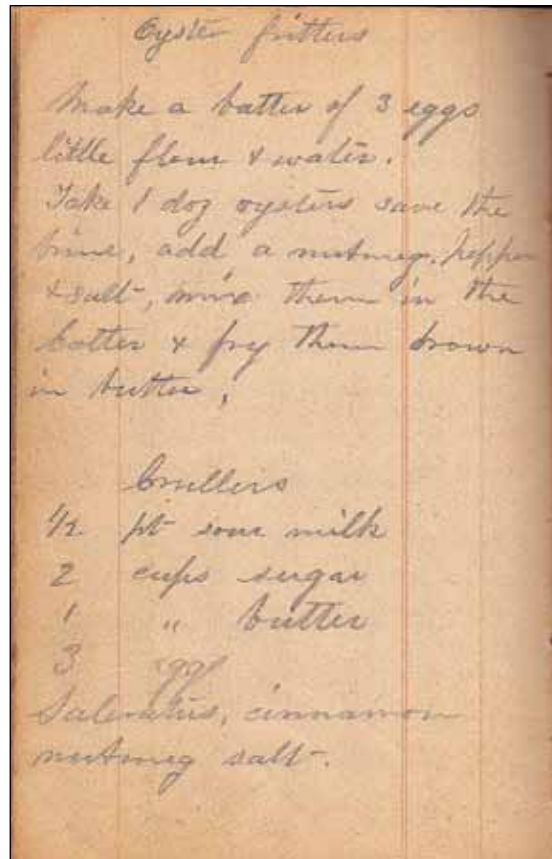 Oyster fritters
Make a batter of 3 eggs
little flour & water.
Take 1 doz oysters save the
brine, add a nutmeg, pepper
& salt, mix them in the
batter & fry them brown
in butter,
Crullers
1/2 pt sour milk
2 cups sugar
1 " butter
3 eggs
Saleratus, cinnamon
nutmeg salt.